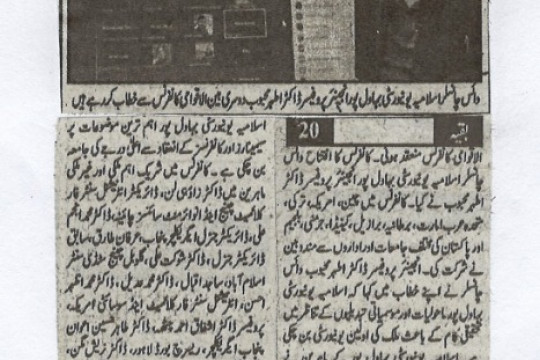 وائس چانسلر اسلامیہ یونیورسٹی بہاول پور انجینئر پروفیسر ڈاکٹر اطہر محبوب دوسری بین الاقوامی کانفرنس سے خطاب کر رہے ہیں
بقیہ 20
الاقوامی کانفرنس منعقد ہوئی۔ کانفرنس کا افتتاح وائس
چانسلر اسلامیہ یونیورسٹی بہاول پور انجینئر پروفیسر ڈاکٹر
اطہر محبوب نے کیا۔ کانفرنس میں چین، امریکہ، ترکی،
متحدہ عرب امارات، برطانیہ، برازیل، کینیڈا، جرمنی، بلجیم
اور پاکستان کی مختلف جامعات اور اداروں سے مندوبین
نے شرکت کی۔ انجینئر پروفیسر ڈاکٹر اطہر محبوب وائس
چانسلر نے اپنے خطاب میں کہا کہ اسلامیہ یونیورسٹی
بہاول پور ماحولیات اور موسمیاتی تبدیلیوں کے تناظر میں
تحقیقی کام کے باعث ملک کی اولین یونیورسٹی بن چکی
اسلامیہ یونیورسٹی بہاول پور اہم ترین موضوعات پر
سیمینارز اور کانفرنسز کے انعقاد سے اعلیٰ درجے کی جامعہ
بن چکی ہے۔ کانفرنس میں شریک اہم ملکی اور غیر ملکی
ماہرین میں ڈاکٹر زاؤہی لن، ڈائریکٹر انٹرنیشنل سنٹر فار
کلائمیٹ چینج اینڈ انوائرمنٹ سائنسز چائینہ، ڈاکٹر محمد انجم
علی، ڈائریکٹر جنرل ایگریکلچر پنجاب، عرفان طارق، سابق
ڈائریکٹر جنرل، ڈاکٹر شوکت علی، گلوبل چینج سٹڈی سنٹر
اسلام آباد، ساجد اقبال، ڈاکٹر محمد عدیل، ڈاکٹر محمد اظہر
احسن، انٹرنیشنل سنٹر فار کلائمیٹ اینڈ سوسائٹی امریکہ،
پروفیسر ڈاکٹر اشفاق احمد چٹھہ، ڈاکٹر طاہر حسین اعوان
پنجاب ایگریکلچر ریسرچ بورڈ لاہور، ڈاکٹر